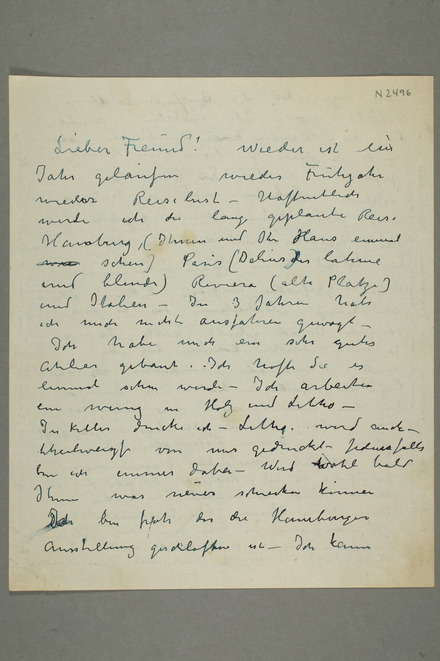 N2496
Lieber Freund! Wieder ist ein
Jahr gelaufen wieder Frühjahr
wieder Reiselust – Hoffentlich
werde ich die lang geplante Reise
Hamburg, (Ihnen und Ihr Haus einmal
sehen) Paris (Delius der lahme
und blinde) Riviera (alte Plätze)
und Italien – In 3 Jahren hab
ich mich nicht ausfahren gewagt –
Ich habe mich ein sehr gutes
Atelier gebaut. Ich hoffe Sie es
einmal sehen werde – Ich arbeiten
ein wenig in Holz und Litho –
In Keller drucke ich – Litho. werd auch
von mir gedruckt jedenfalls
bin ich immer dabei – Werd wohl bald
Ihnen was neues schicken können
Ich bin froh das die Hamburger
Ausstellung geschlossen ist – Ich kann